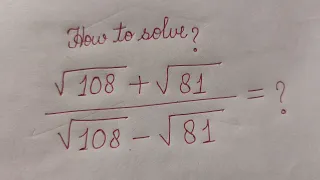 How to solve?
√108 + √81 / √108 - √81 = ?